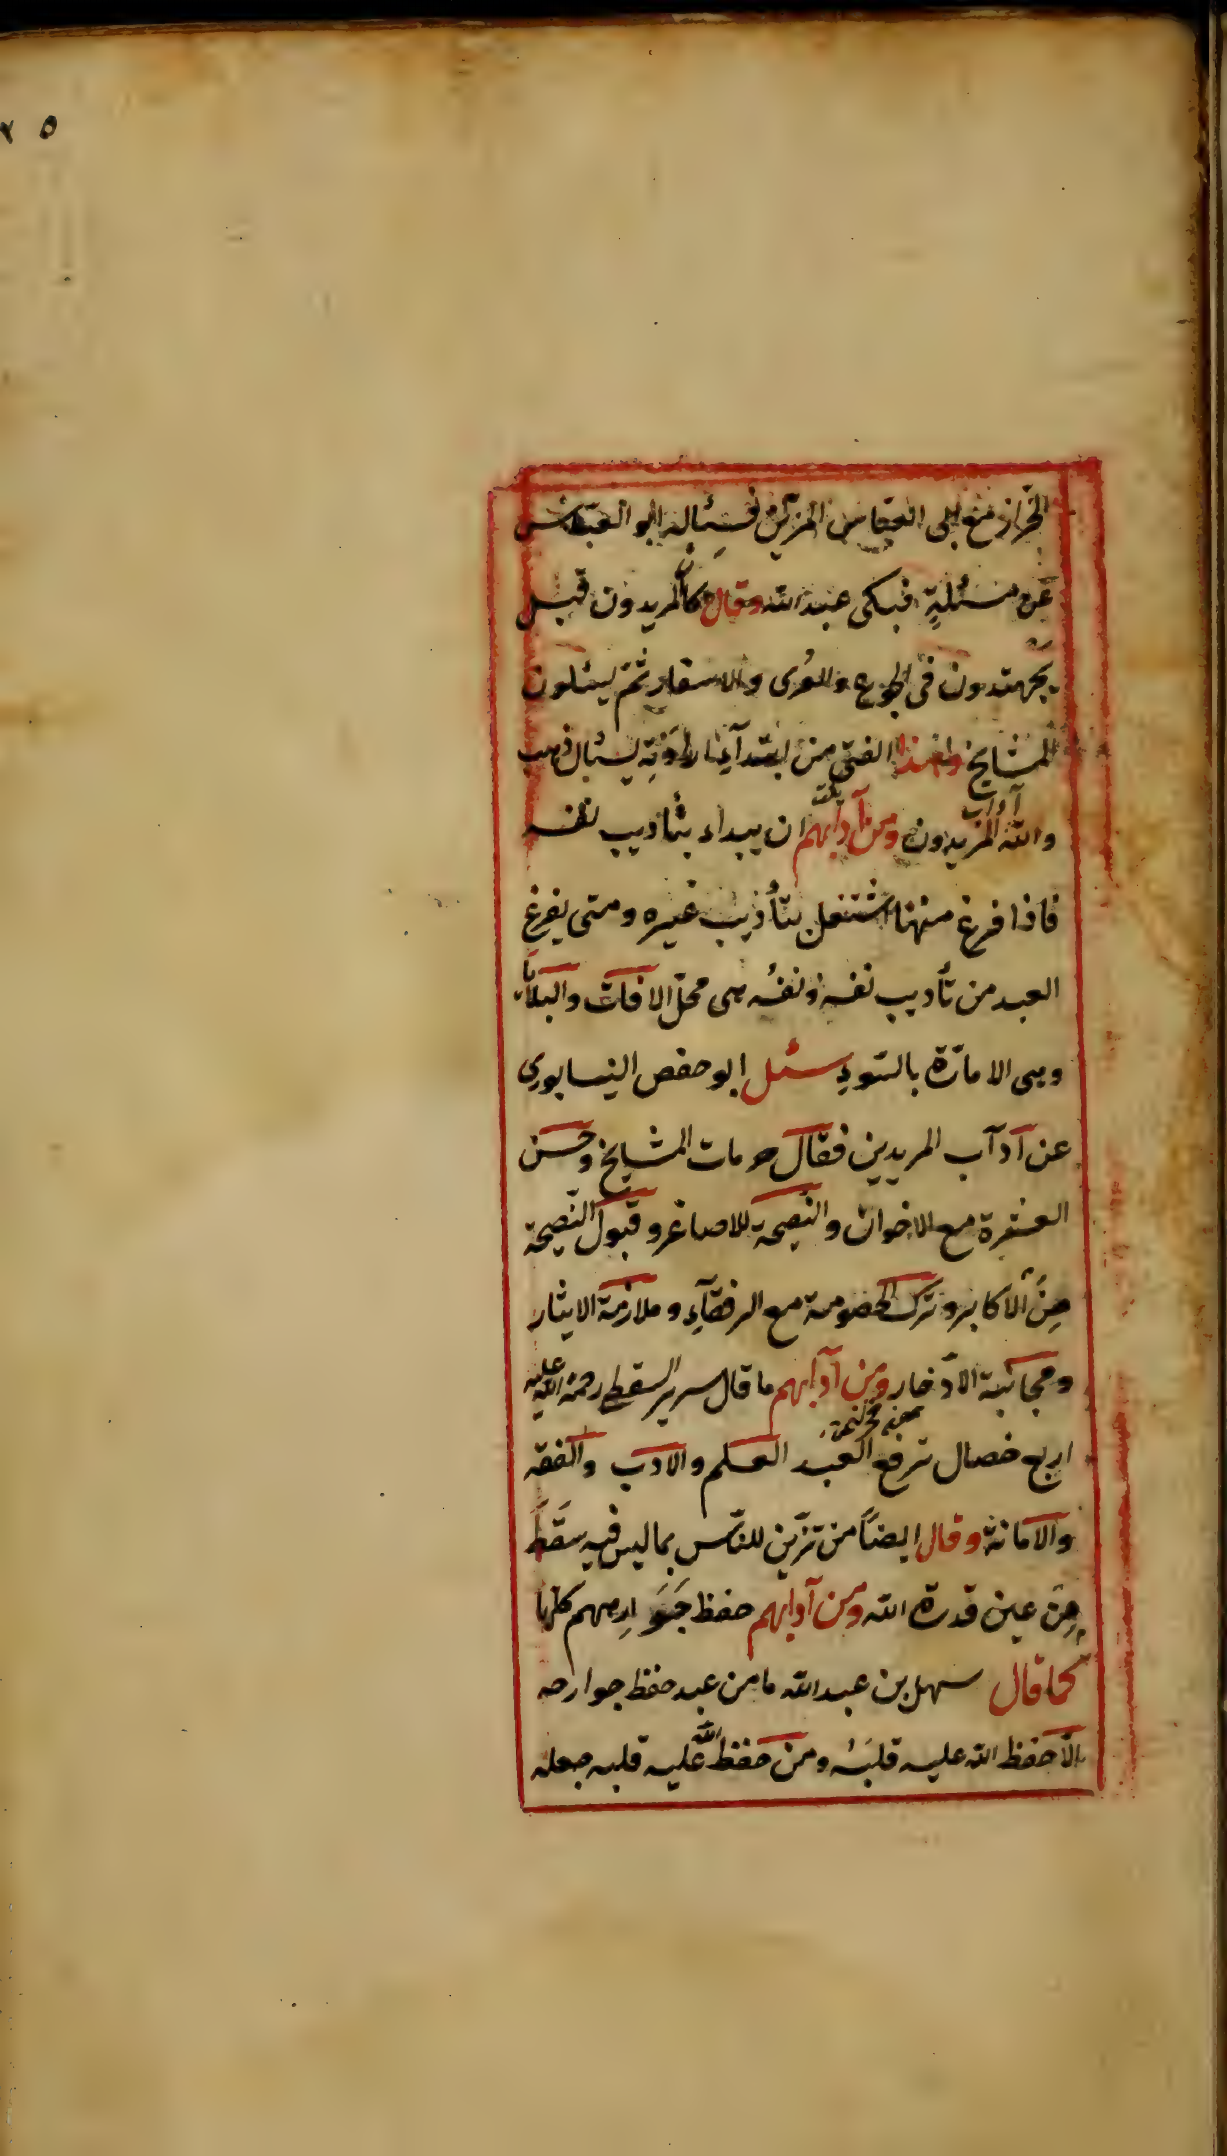 ٢٥
الخراز مع ابى العباس المزين فسئاله ابو العباس
عن مسئلةٍ فبكى عبد الله وقال كان المريدون قبل
يجهتدون فى الجوع والعُرى والاسفار ثمّ يسئلون
المشايخ وهذا الفتى من ابتدآء يسئال ذهب
والله آداب المريدون ومن آدابهم ان يبداء بتأديب نفسه
فاذا فرغ منها اشتغل بتأديب غيره ومتى يفرغ
العبد من تأديب نفسه ونفسُه هى محلّ الافات والبلايا
وهى الامارّة بالسّوءِ سئل ابو حفص النيسابورى
عن آدآب المريدين فقال حرمات المشايخ وحسن
العشرة مع الاخوان والنصيحة للاصاغر وقبول النّصيحة
مِنَ الاكابر وترك الخصومة مع الرفقآءِ وملازمة الايثار
ومجانبة الادّخار ومن آدابهم ما قال سرير السقطى رحمة الله عليه
اربع خصال ترفع العبد العلم والادب والفقه
والامانة وقال ايضاً من تزيّن للنّاس بما ليس فيه سقَطَ
مِن عين قدرة الله ومن آدابهم حفظ جَوَارِحهم كلها
كما قال سهل بن عبد الله ما من عبد حفظ جوارحه
الّا حفظ الله عليه قلبَهُ ومن حفظ الله عليه قلبه جعله